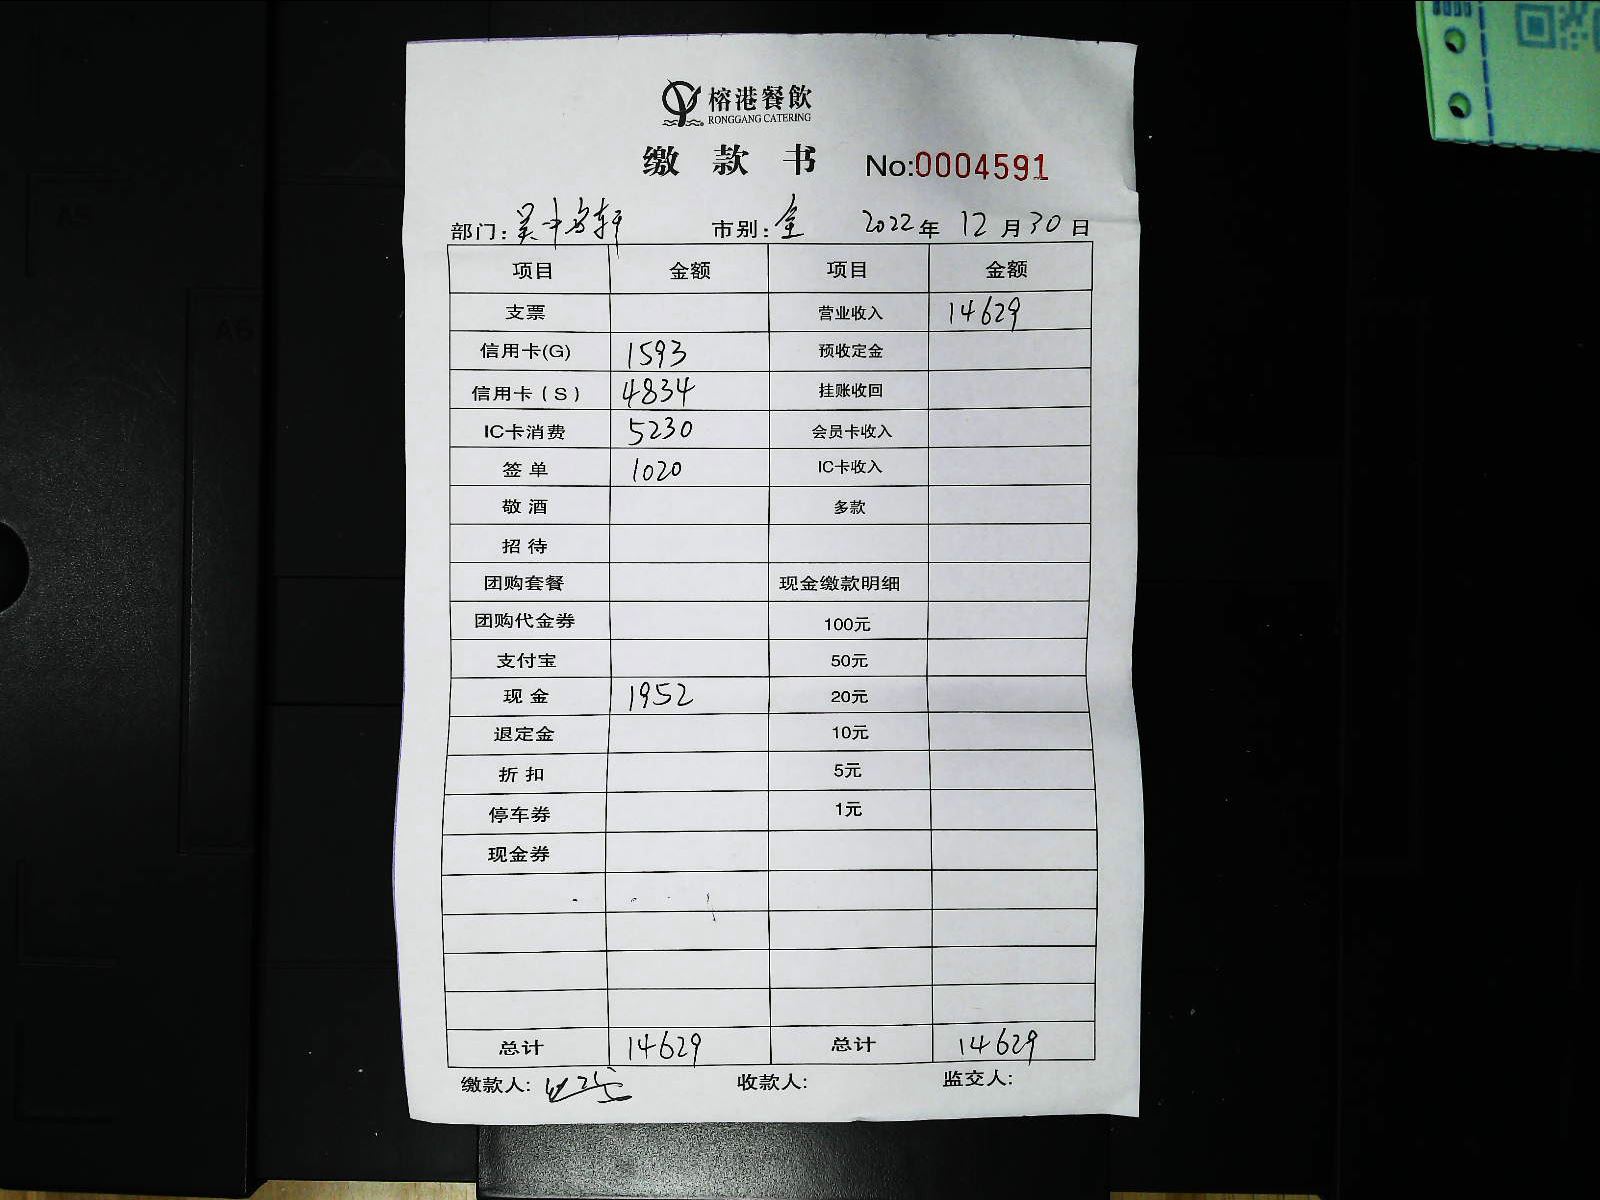 榕港餐飲
RONGGANG CATERING
缴款书 No:0004591
部门: 市别: 全 2022年 12月30日
项目 金额 项目 金额
支票 营业收入 14629
信用卡(G) 1593 预收定金
信用卡(S) 4834 挂账收回
IC卡消费 5230 会员卡收入
签单 1020 IC卡收入
敬酒 多款
招待
团购套餐 现金缴款明细
团购代金券 100元
支付宝 50元
现金 1952 20元
退定金 10元
折扣 5元
停车券 1元
现金券
总计 14629 总计 14629
缴款人: 收款人: 监交人: